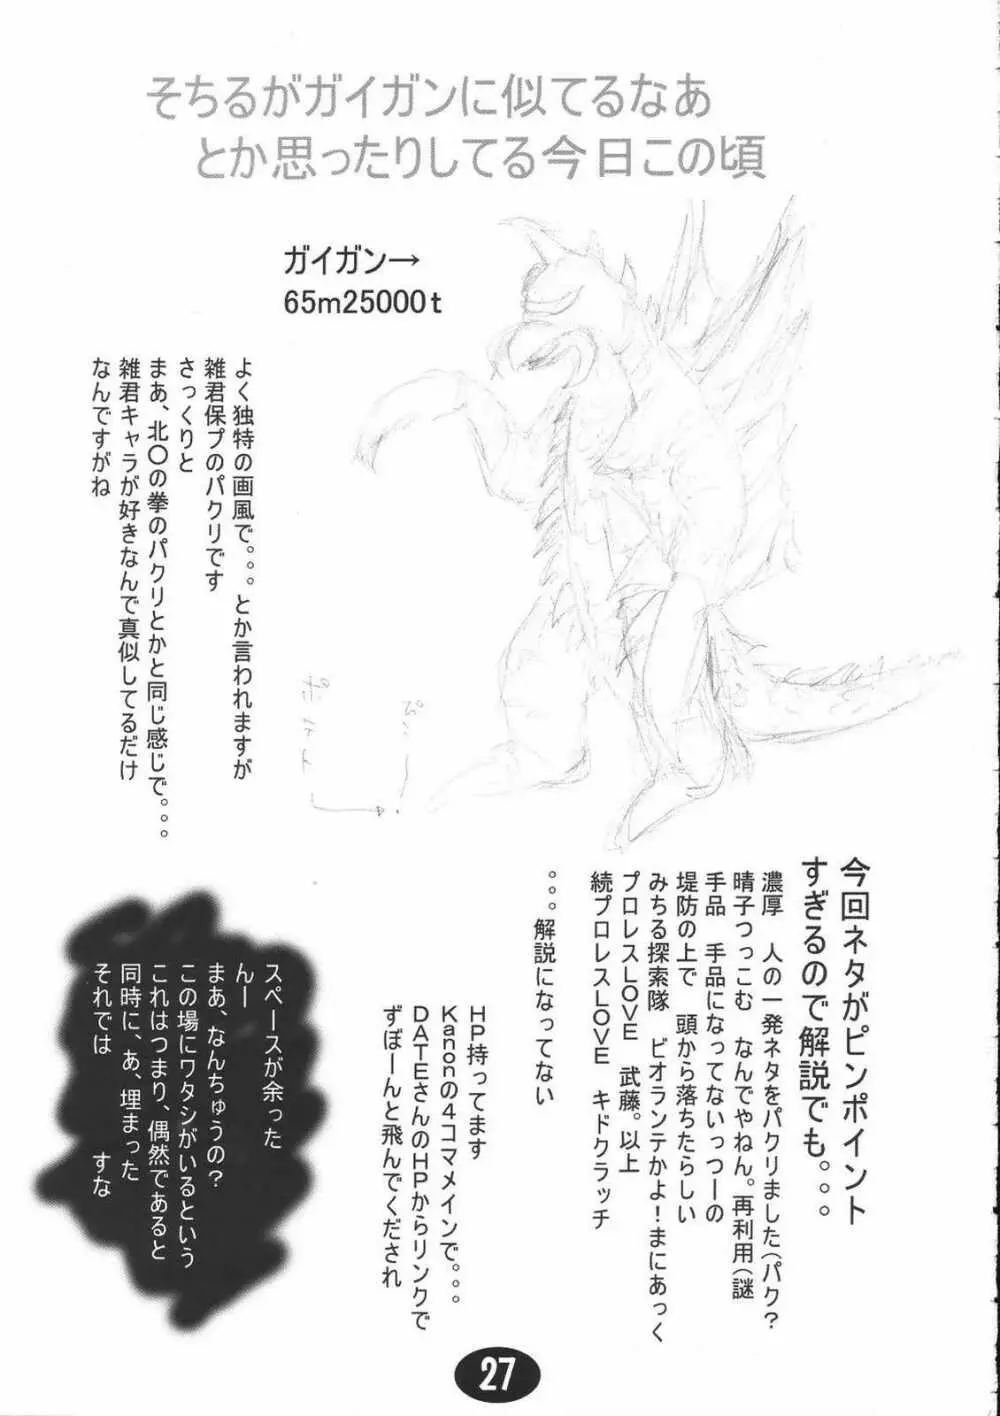 そちるがガイガンに似てるなあ
とか思ったりしてる今日この頃
ガイガン→
65m25000t
よく独特の画風で。。。とか言われますが
雑君保プのパクリです
さっくりと
まあ、北〇の拳のパクリとかと同じ感じで。。。
雑君キャラが好きなんで真似してるだけ
なんですがね
今回ネタがピンポイント
すぎるので解説でも。。。
濃厚　人の一発ネタをパクリました(パク？
晴子つっこむ　なんでやねん。再利用(謎
手品　手品になってないっつーの
堤防の上で　頭から落ちたらしい
みちる探索隊　ビオランテかよ！まにあっく
プロレスLOVE　武藤。以上
続プロレスLOVE　キドクラッチ
。。。解説になってない
HP持ってます
Kanonの4コマメインで。。。
DATEさんのHPからリンクで
ずぼーんと飛んでくだされ
スペースが余った
んー
まあ、なんちゅうの？
この場にワタシがいるという
これはつまり、偶然であると
同時に、あ、埋まった
それでは　　　すな
27